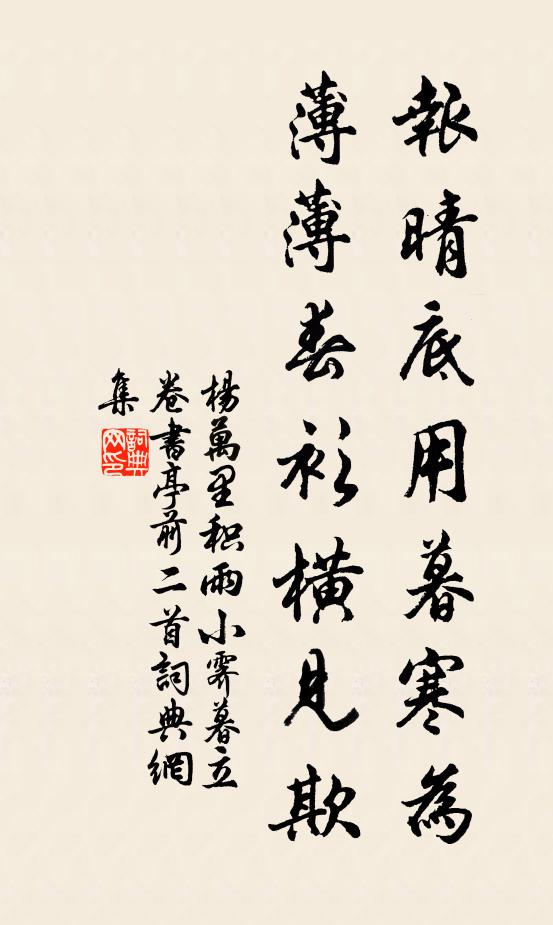 報晴底用暮寒為
薄薄春衫橫見欺
楊萬里積雨小霽暮立
卷書亭前二首詞典網
集
詞典網印